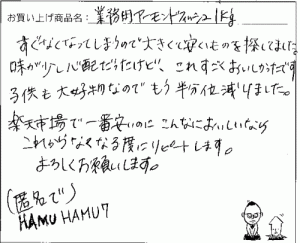 お買い上げ商品名: 業務用アーモンドフィッシュ1kg
すぐなくなってしまうので大きくて安いものを探してました。
味が少し心配だったけど、これすごくおいしかったです
子供も大好物なのでもう半分位減りました。
楽天市場で一番安いのにこんなにおいしいなら
これからなくなる度にリピートします。
よろしくお願いします。
(匿名で)
HAMU HAMU7